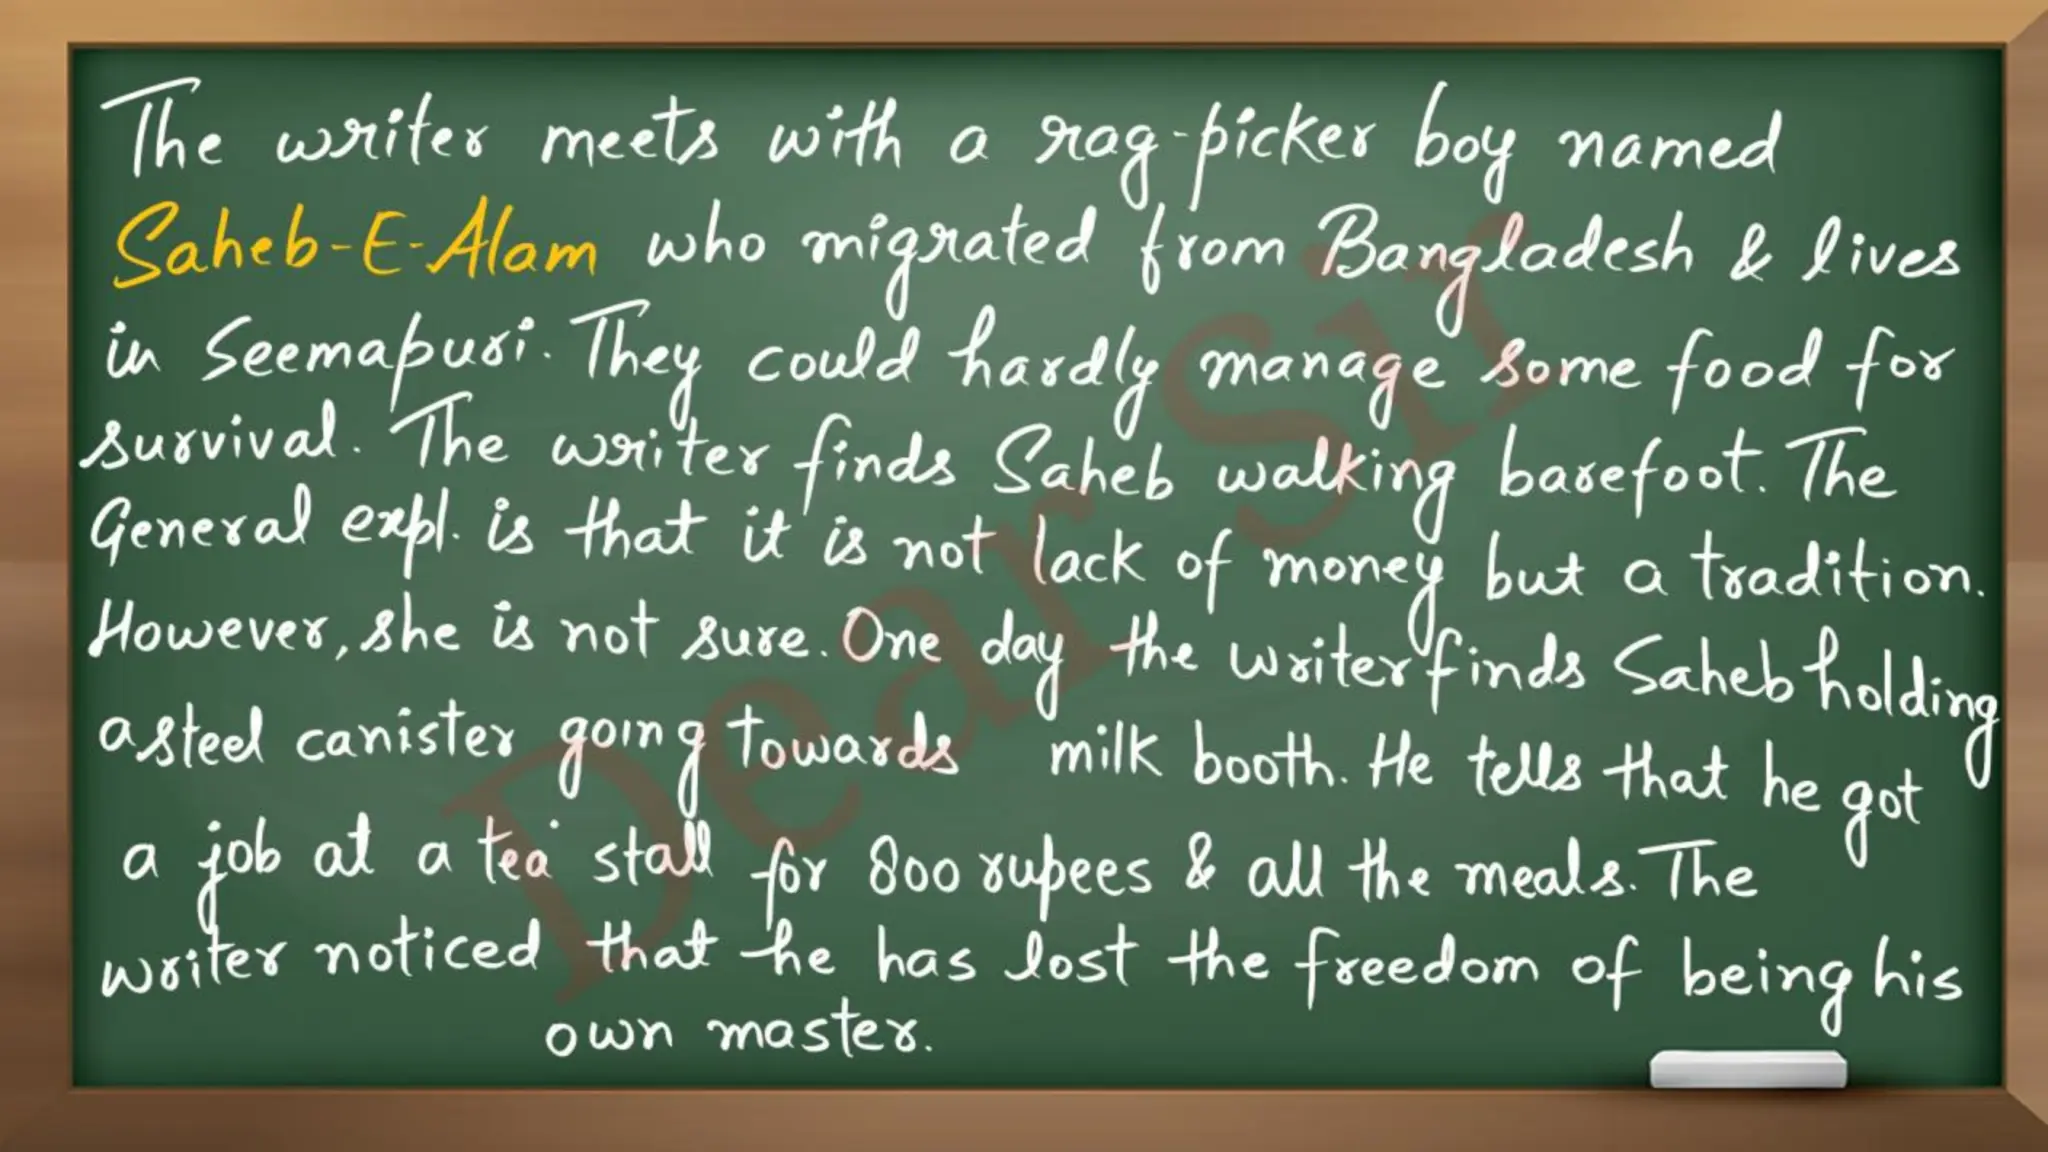 The writer meets with a rag-picker boy named
Saheb-E-Alam who migrated from Bangladesh & lives
in Seemapuri. They could hardly manage some food for
survival. The writer finds Saheb walking barefoot. The
General expl. is that it is not lack of money but a tradition.
However, she is not sure. One day the writer finds Saheb holding
a steel canister going towards milk booth. He tells that he got
a job at a tea stall for 800 rupees & all the meals. The
writer noticed that he has lost the freedom of being his
own master.
Dear Sir